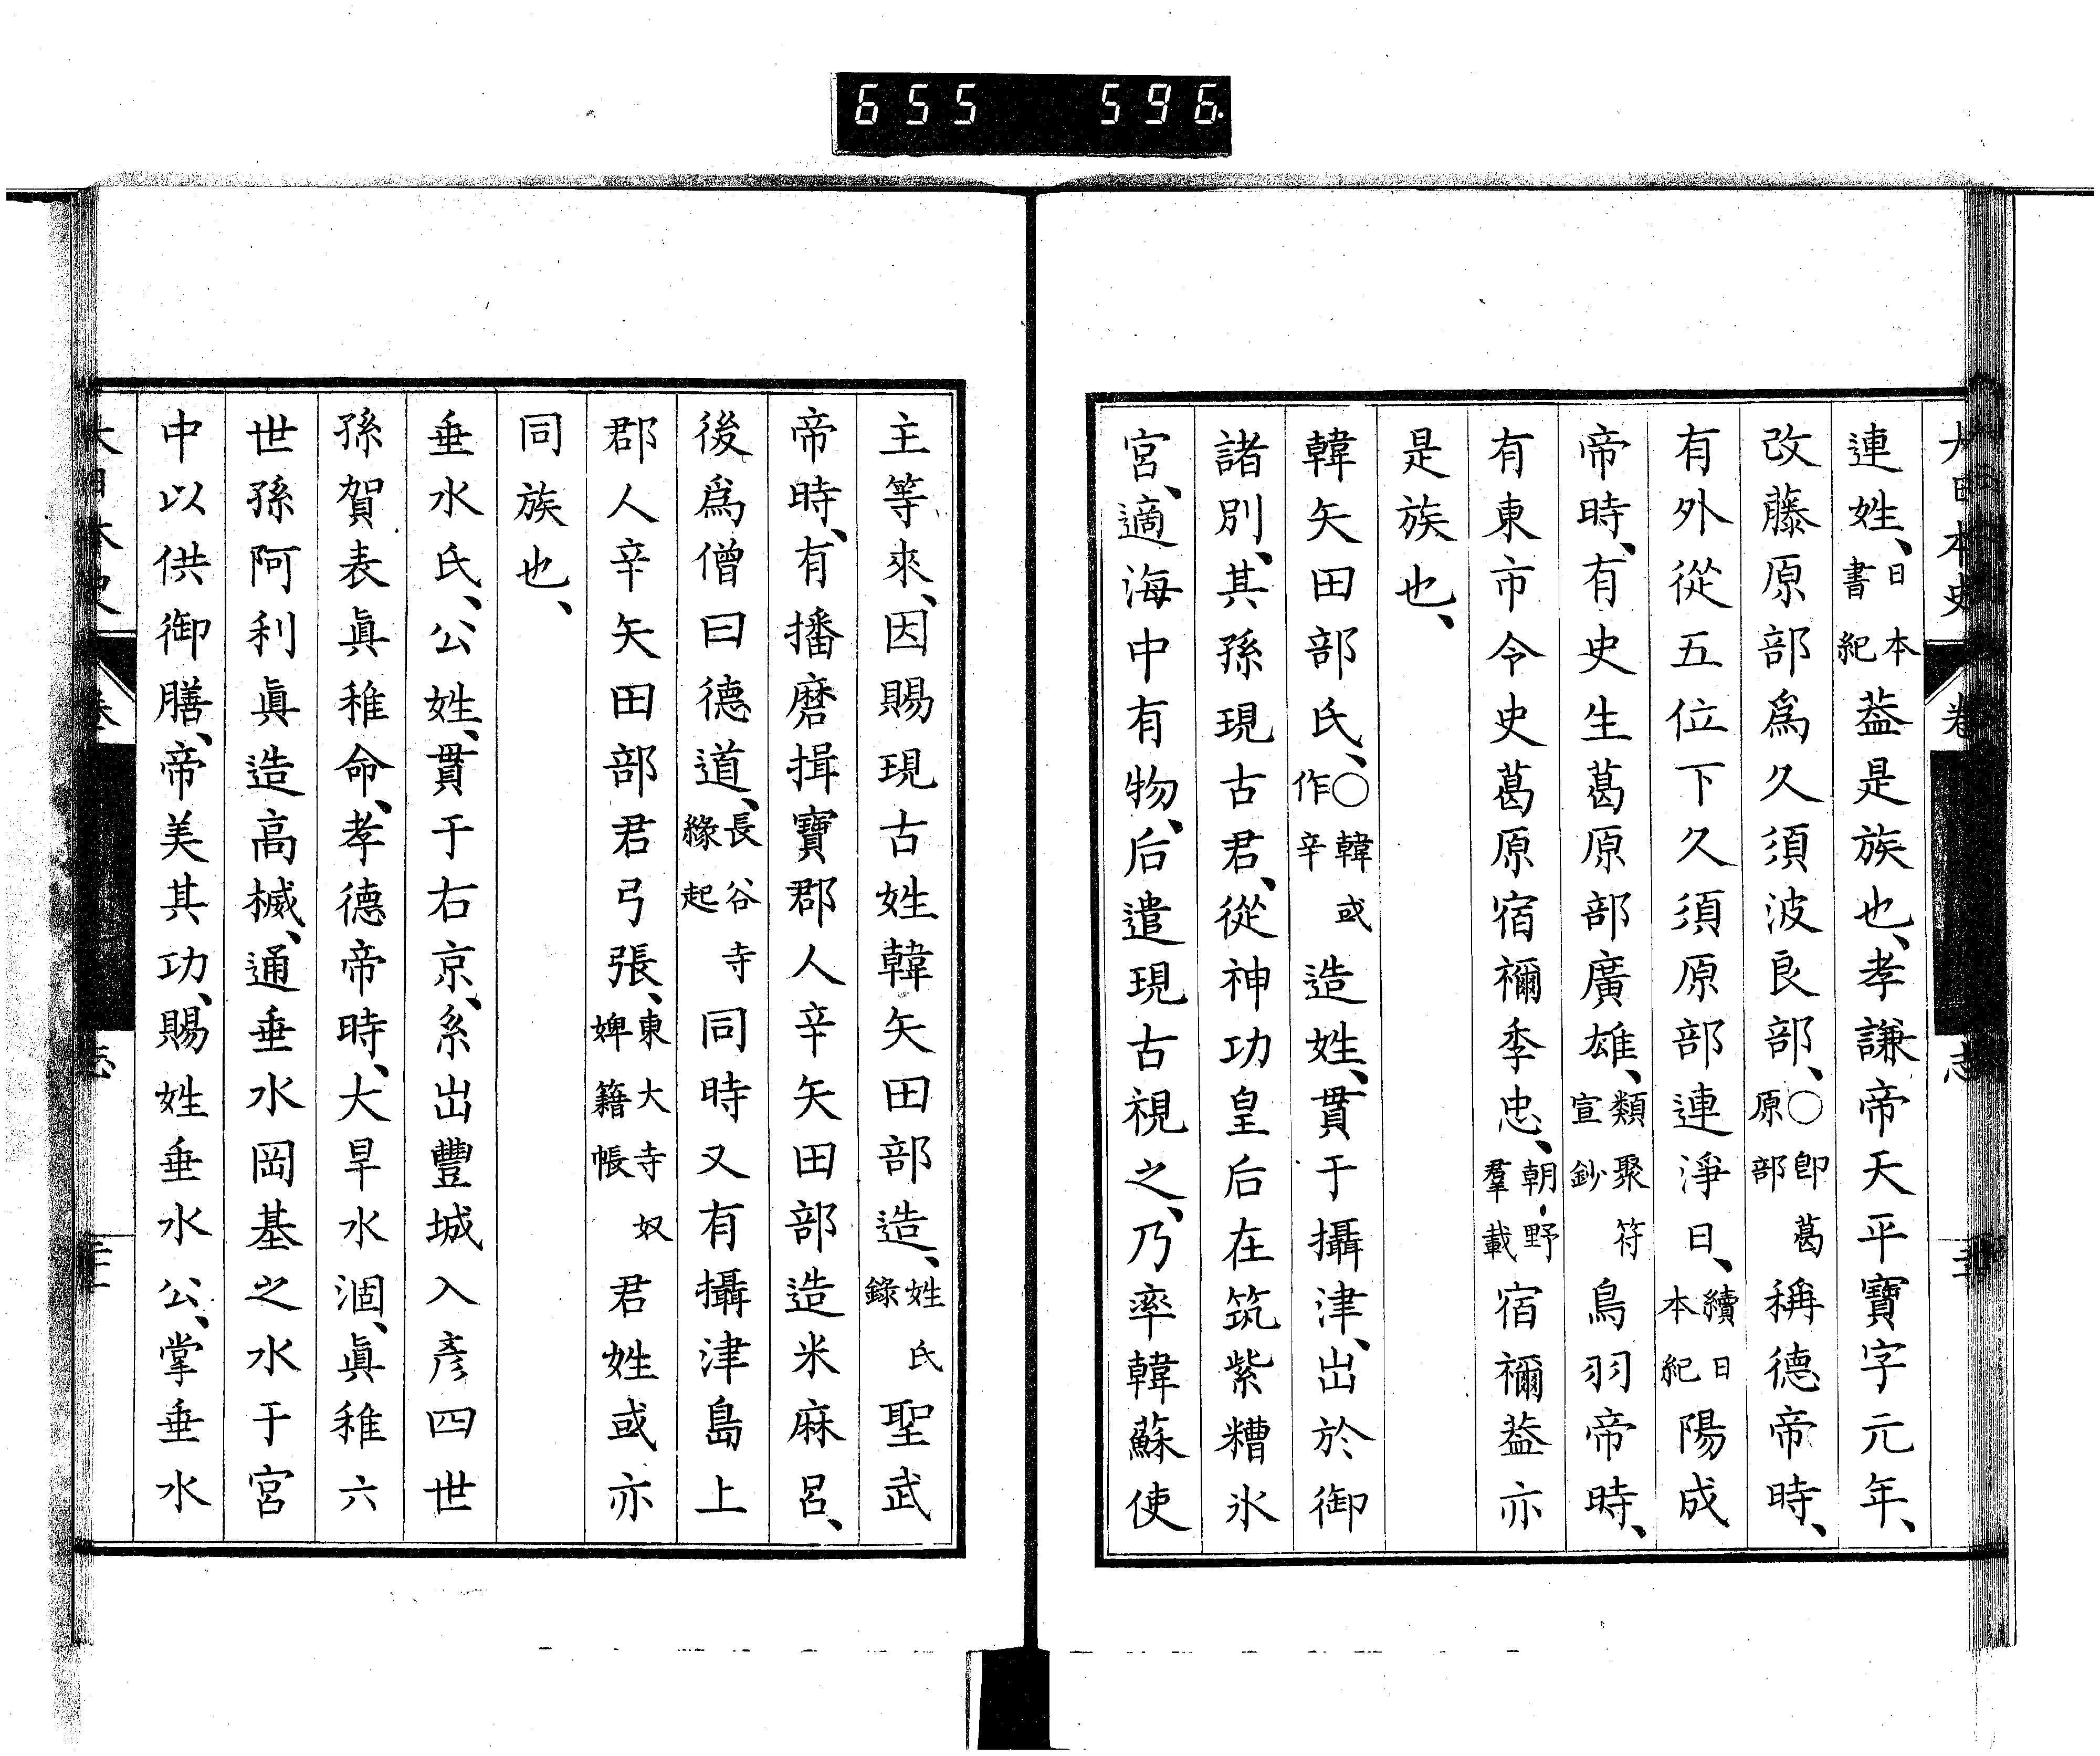 655 596
大日本史 卷 志
連姓、日本書紀蓋是族也、孝謙帝天平寶字元年、
改藤原部爲久須波良部、〇卽葛原部稱德帝時、
有外從五位下久須原部連淨日、續日本紀陽成
帝時、有史生葛原部廣雄、類聚符宣鈔鳥羽帝時、
有東市令史葛原宿禰季忠、朝野羣載宿禰蓋亦
是族也、
韓矢田部氏、〇韓或作辛造姓、貫于攝津、出於御
諸別、其孫現古君、從神功皇后在筑紫糟氷
宮、適海中有物、后遣現古視之、乃率韓蘇使
主等來、因賜現古姓韓矢田部造、姓氏錄聖武
帝時、有播磨揖寶郡人辛矢田部造米麻呂、
後爲僧曰德道、長谷寺緣起同時又有攝津島上
郡人辛矢田部君弓張、東大寺奴婢籍帳君姓或亦
同族也、
垂水氏、公姓、貫于右京、系出豐城入彥四世
孫賀表眞稚命、孝德帝時、大旱水涸、眞稚六
世孫阿利眞造高樴、通垂水岡基之水于宮
中以供御膳、帝美其功、賜姓垂水公、掌垂水
大日本史 卷 志